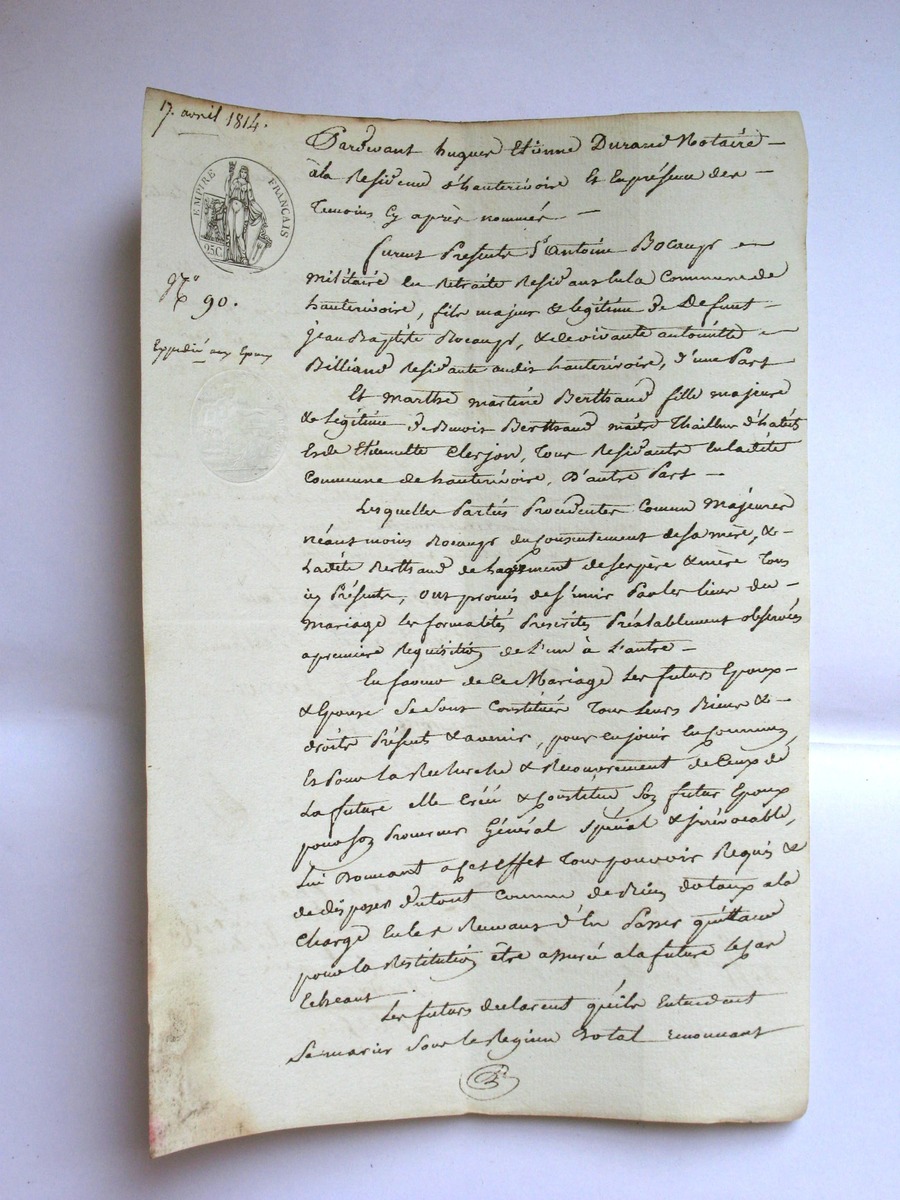 17. avril 1814.
EMPIRE FRANÇAIS
25C
N.° 90.
Expedié aux Epoux
Pardevant hugues Etienne Durand Notaire
à la Residence d'hauterivoire Et En présence des
Temoins Cy après nommés
furent Presents S.r Antoine Bocaugs
militaire En Retraite Residant En la Commune de
hauterivoire, fils majeur & legitime de Defunt
jean Baptiste Rocaugs, & de vivante antoinette
Billiand Residante audit hauterivoire, d'une Part
Et marthe martine Berthaud fille majeure
& légitime de Benoit Berthaud maitre Thailleur d'habits
Et de Etiennette Clerjon, Tous Residants En la dite
Commune de hauterivoire, D'autre Part
Lesquelles Parties Procédentes Comme Majeures
néantmoins Rocaugs du Consentement de sa mère, &
Ladite Berthaud de L'agrément de ses père & mère Tous
icy Présents, ont promis de S'unir Par les liens du
Mariage Les formalités Prescrites Préalablement observées
a première Requisition de L'un à L'autre
En faveur de Ce Mariage Les futurs Epoux
& Epouse Se Sont Constitués Tous Leurs Biens &
droits Présents & avenir, pour En jouir En Commun,
Et Pour La Recherche & Recouvrement de Ceux de
La future elle Créé & Constitue Son futur Epoux
pour Son Procureur Général Spécial & irrévocable,
Lui Donnant a Cet Effet Tous pouvoirs Requis &
de disposer du tout Comme de Biens dotaux a la
Charge En les Recevant d'En Passer quittance
pour La Restitution être assurée a la future le Cas
Echeant.
Les futurs declarent qu'ils Entendent
Se marier Sous Le Regime Dotal renonçant